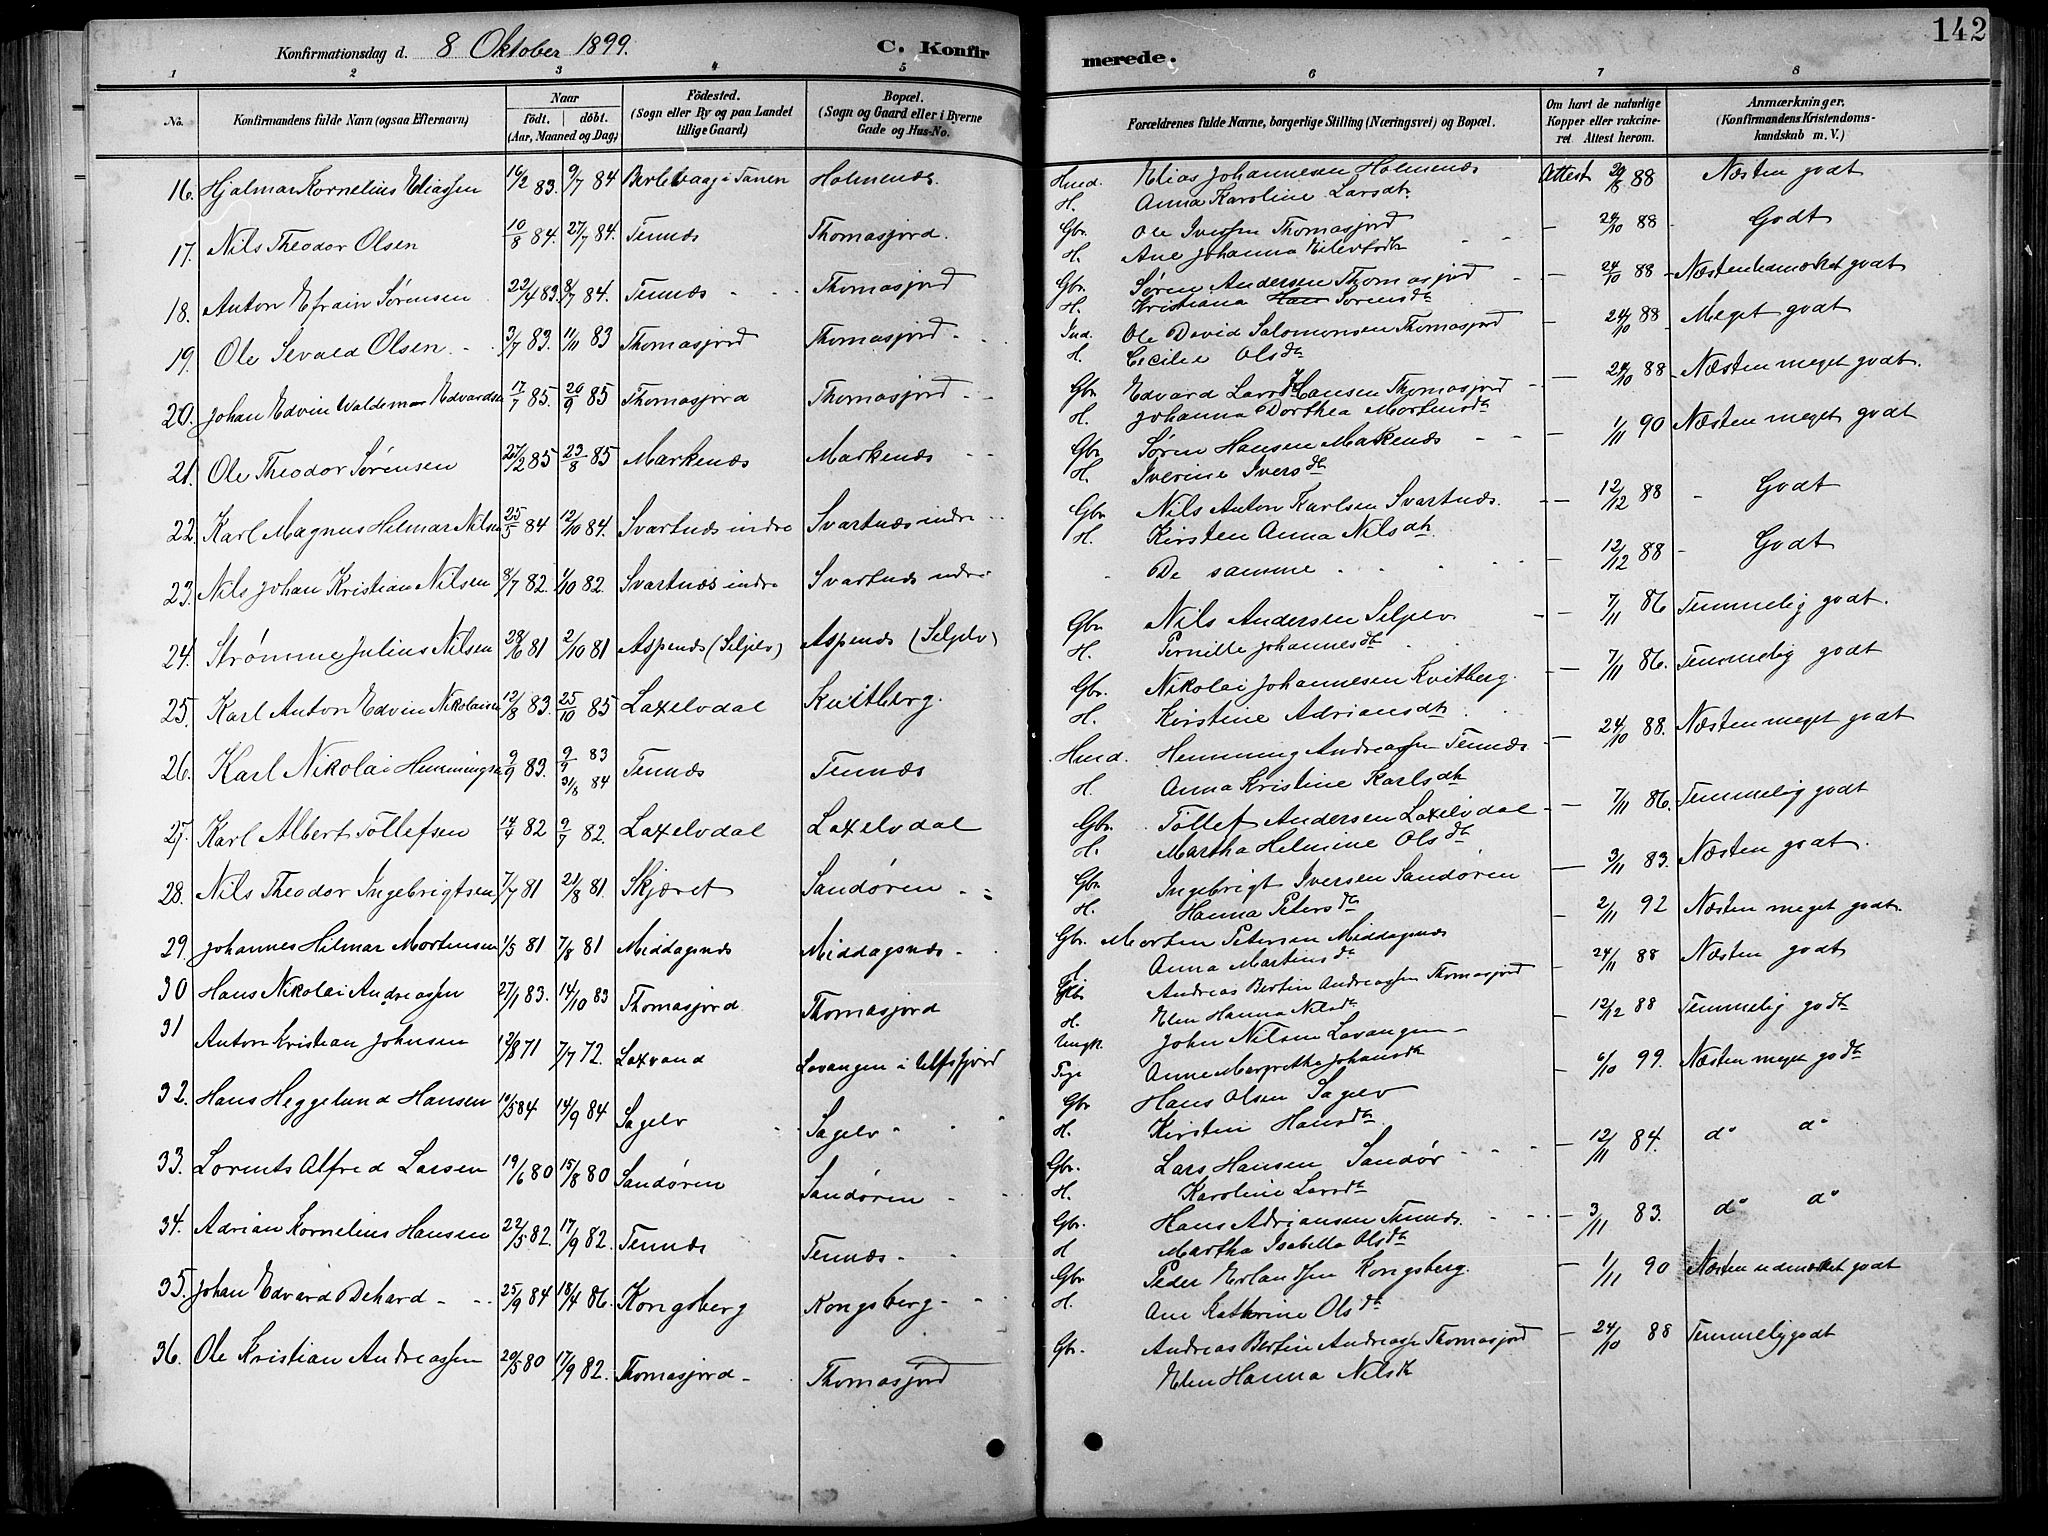 142
Konfirmationsdag d. 8 Oktober 1899. C. Konfirmerede.
1 2 3 4 5 6 7 8
No. Konfirmandens fulde Navn (ogsaa Efternavn) Naar Født. døbt. (Aar, Maaned og Dag) Fødested. (Sogn eller By og paa Landet tillige Gaard) Bopæl. (Sogn og Gaard eller i Byerne Gade og Hus-No. Forældrenes fulde Navne, borgerlige Stilling (Næringsvei) og Bopæl. Om havt de naturlige Kopper eller vakcineret Attest herom. Anmærkninger. (Konfirmandens Kristendomskundskab m. V.)
16. Hjalmar Kornelius Eliassen 16/2 83. 9/7 84 Berlevaag i Tanen Holmenæs Hmd. Elias Johannesen Holmenæs Attest 20/8 88 Næsten godt
H. Anna Karoline Larsdtr
17. Nils Theodor Olsen 10/8 84. 27/7 84. Tennæs Thomasjord. Gbr. Ole Iversen Thomasjord - 24/10 88 - Godt
H. Ane Johanna Eilevsdtr
18. Anton Efraim Sørensen 22/4 83. 8/7 84. Tennæs Thomasjord Gbr. Søren Andersen Thomasjord - 24/10 88 - Næsten udmærket godt
H. Kristiana Sørensdtr
19. Ole Sevald Olsen 3/7 83. 11/11 83 Thomasjord Thomasjord Ind. Ole David Salomonsen Thomasjord - 24/10 88 - Meget godt
H. Cecilie Olsdtr
20. Johan Edvin Waldemar Edvardsen 17/7 85. 20/9 85 Thomasjord Thomasjord Gbr Edvard Lars Hansen Thomasjord - 24/10 88 - Næsten meget godt.
H. Johanna Dorthea Mortensdtr
21. Ole Theodor Sørensen 27/2 85 23/8 85 Markenæs Markenæs Gbr. Søren Hansen Markenæs - 1/11 90 Næsten meget godt
H. Iverine Iversdtr
22. Karl Magnus Hilmar Nilsen 25/5 84 12/10 84. Svartnæs indre Svartnæs indre Gbr. Nils Anton Karlsen Svartnæs. - 12/12 88 - Godt
H. Kirsten Anna Nilsdtr.
23. Nils Johan Kristian Nilsen 8/7 82. 1/10 82. Svartnæs indre Svartnæs indre De samme - 12/12 88 - Godt
24. Strømme Julius Nilsen 28/6 81 2/10 81 Aspenæs (Seljelv) Aspenæs (Seljelv) Gbr. Nils Andersen Seljelv - 7/11 86 Temmelig godt.
H. Pernille Johannesdtr
25. Karl Anton Edvin Nikolaisen 12/8 83. 25/10 85 Laxelvdal Kvitberg. Gbr. Nikolai Johannesen Kvitberg. - 7/11 86. Temmelig godt
H. Kirstine Adriansdtr
26. Karl Nikolai Hemmingsen 9/9 83. 9/9 83 31/8 84 Tennæs Tennæs Hmd. Hemming Andreassen Tennæs - 24/10 88. Næsten meget godt
H. Anna Kristine Karlsdtr
27. Karl Albert Tollefsen 14/4 82 9/7 82. Laxelvdal Laxelvdal Gbr. Tollef Andersen Laxelvdal - 7/11 86. Temmelig godt
H. Martha Helmine Olsdtr
28. Nils Theodor Ingebrigtsen 7/7 81 21/8 81. Skjæret Sandøren Gbr. Ingebrigt Iversen Sandøren - 3/11 83. Næsten godt.
H. Hanna Petersdtr
29. Johannes Hilmar Mortensen 1/5 81 7/8 81 Middagsnæs Middagsnæs Gbr. Morten Petersen Middagsnæs - 2/11 92 Næsten meget godt.
Anna Martinsdtr
30 Hans Nikolai Andreassen 27/1 83. 14/10 83 Thomasjord Thomasjord Gbr Andreas Bertin Andreassen Thomasjord - 24/11 88 Næsten godt
H. Elen Hanna Nilsdtr
31 Anton Kristian Johnsen 12/8 71 7/7 72. Laxvand Lavangen i Ulfsfjord Ungk. John Nilsen Lavangen - 12/12 88 Temmelig godt
Pige Anne Margrethe Johansdtr
32. Hans Heggelund Hansen 10/5 84 14/9 84 Sagelv Sagelv Gbr Hans Olsen Sagelv - 6/10 99. Næsten meget godt
H. Kirsten Hansdtr
33. Lorents Alfred Larsen 19/6 80 15/8 80 Sandøren Sandøren Gbr. Lars Hansen Sandør - 12/11 84. do do
H. Karoline Larsdtr
34. Adrian Kornelius Hansen 22/5 82. 17/9 82. Tennæs Tennæs Gbr. Hans Adriansen Tennæs. - 3/11 83. do do
H Martha Isabella Olsdtr
35. Johan Edvard Dehard 25/9 84 18/4 86. Kongsberg Kongsberg Gbr Peder Erlandsen Kongsberg. 1/11 90 Næsten udmærket godt
H. Ane Kathrine Olsdtr
36. Ole Kristian Andreassen 20/5 80 17/9 82. Thomasjord Thomasjord Gbr. Andreas Bertin Andreassen Thomasjord - 24/10 88 Temmelig godt
Elen Hanna Nilsdtr